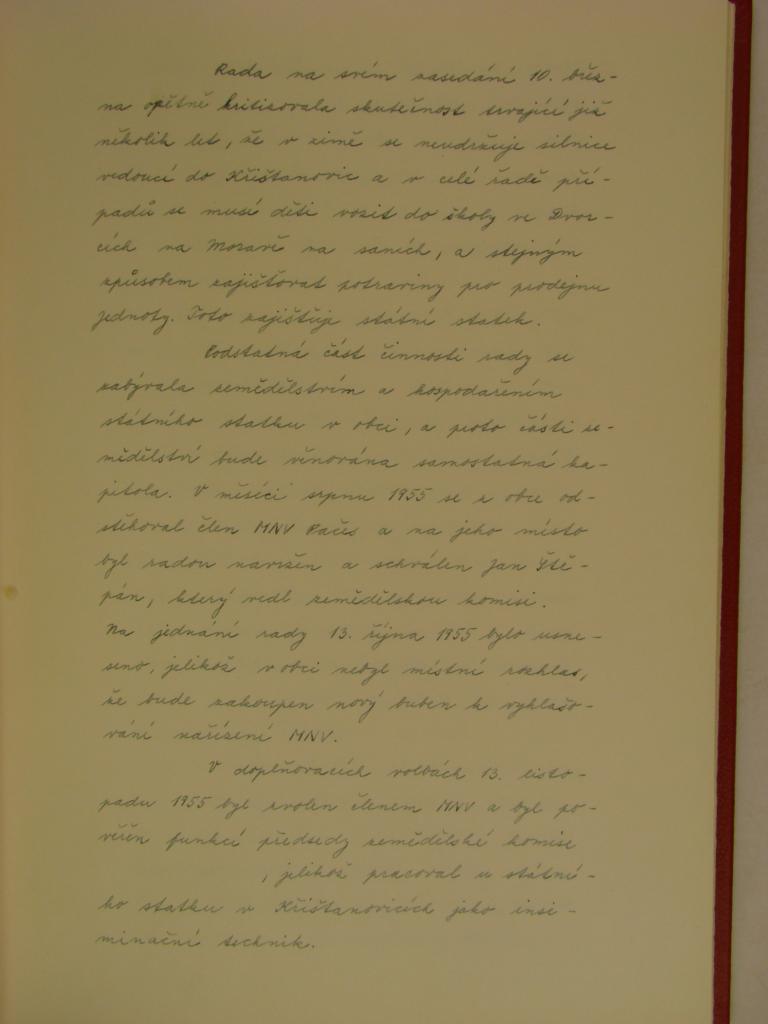 Rada na svém zasedání 10. břez-
na opětně kritizovala skutečnost trvající již
několik let, že v zimě se neudržuje silnice
vedoucí do Křišťanovic a v celé řadě pří-
padů se musí děti vozit do školy ve Dvor-
cích na Moravě na saních, a stejným
způsobem zajišťovat potraviny pro prodejnu
Jednoty. Toto zajišťuje státní statek.
Podstatná část činnosti rady se
zabývala zemědělstvím a hospodařením
státního statku v obci, a proto části ze-
mědělství bude věnována samostatná ka-
pitola. V měsíci srpnu 1955 se z obce od-
stěhoval člen MNV Pačes a na jeho místo
byl radou navržen a schválen Jan Ště-
pán, který vedl zemědělskou komisi.
Na jednání rady 13. října 1955 bylo usne-
seno, jelikož v obci nebyl místní rozhlas,
že bude zakoupen nový buben k vyhlašo-
vání nařízení MNV.
V doplňovacích volbách 13. listo-
padu 1955 byl zvolen členem MNV a byl po-
věřen funkcí předsedy zemědělské komise
, jelikož pracoval u státní-
ho statku v Křišťanovicích jako inse-
minační technik.